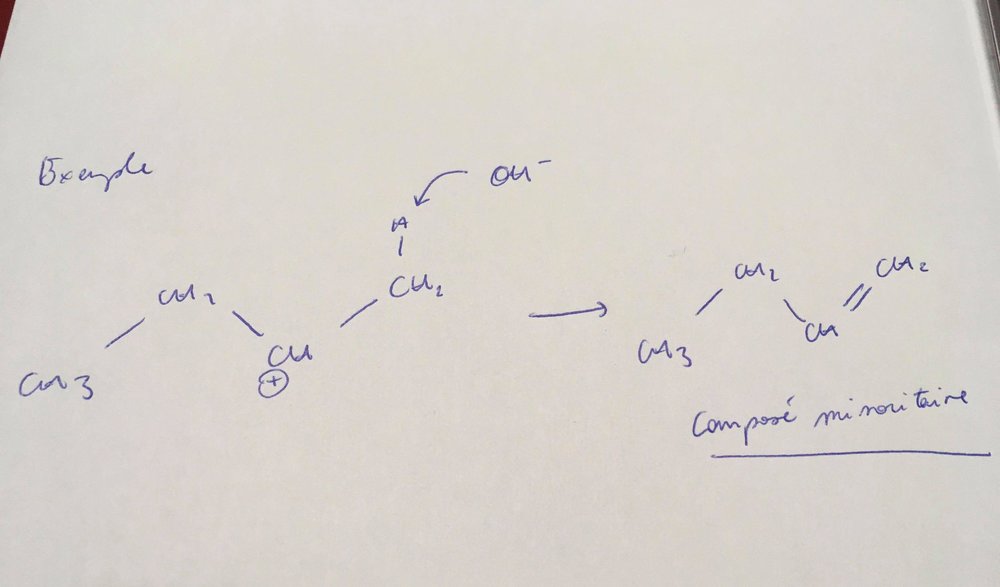 Exemple
OH⁻
H
CH2
CH2
CH3
CH
+
CH2
CH2
CH3
CH
Composé minoritaire